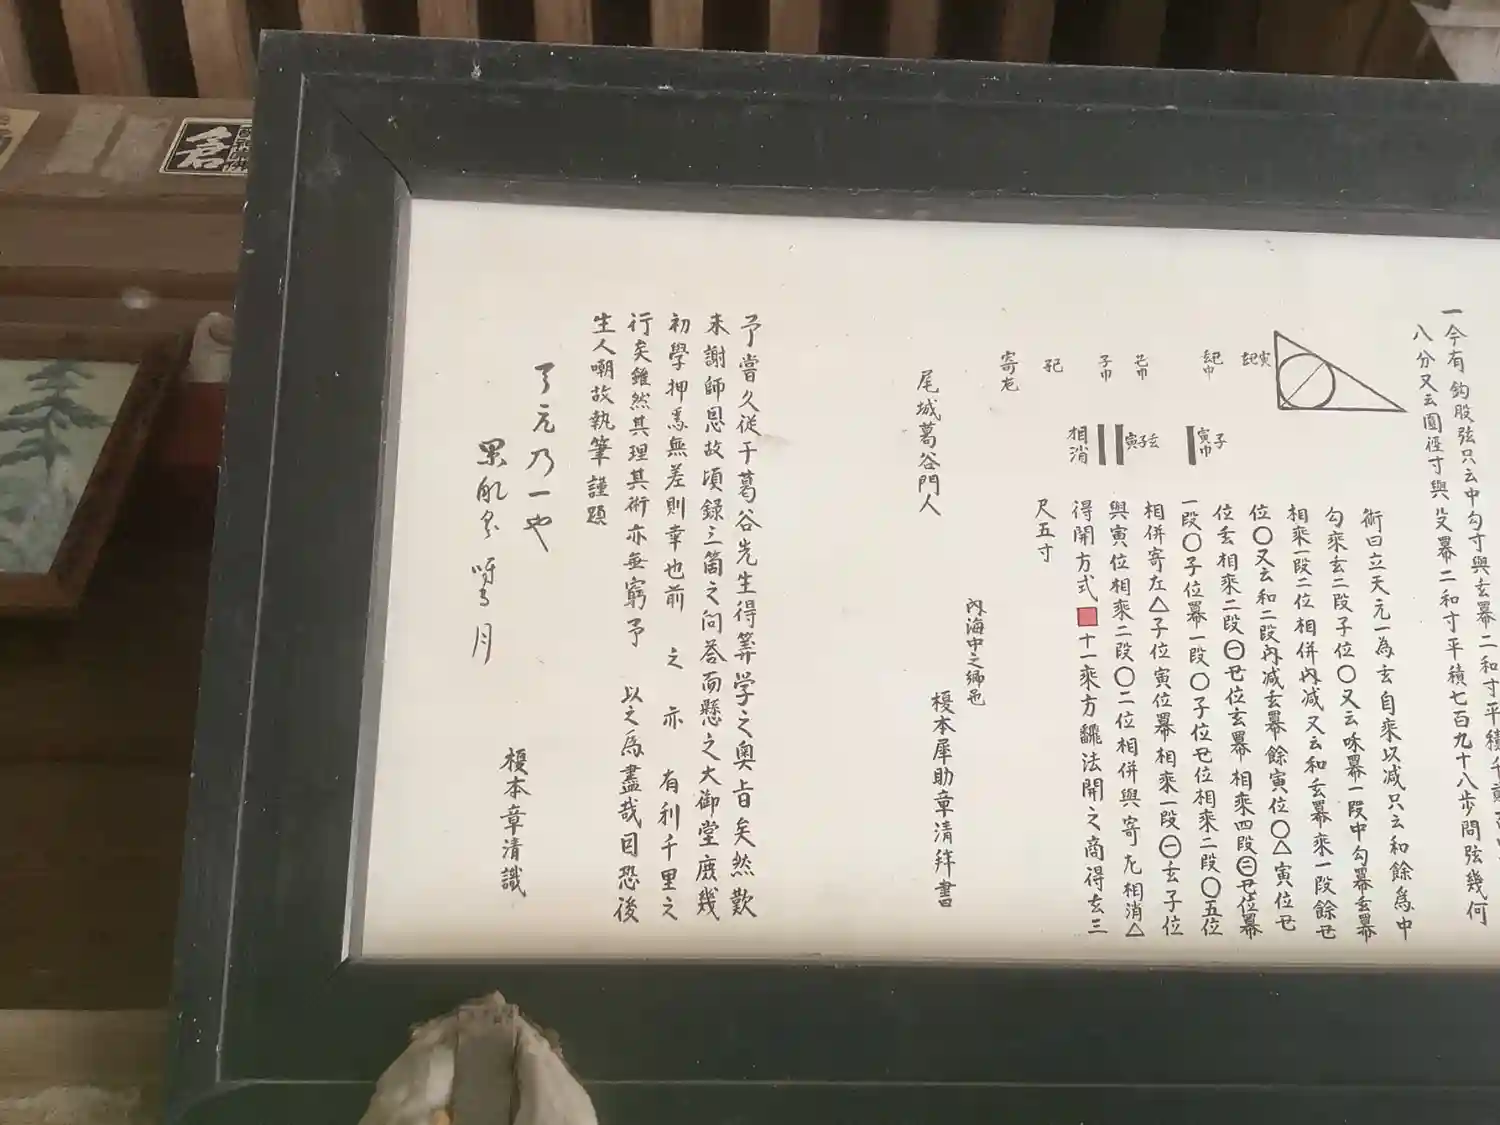 一今有鈎股弦只云中勾寸與玄冪二和寸平積千
八分又云圓徑寸與殳冪二和寸平積七百九十八步問弦幾何
術曰立天元一為玄自乘以减只云和餘為中
勾乘玄二段子位〇又云和冪一段中勾冪玄冪
相乘一段二位相併内减又云和玄冪乘一段餘丑
位〇又云和二段内减玄冪餘寅位〇△寅位丑
位玄相乘二段㊀丑位玄冪相乘四段㊂丑位冪
一段〇子位冪一段〇子位丑位相乘二段〇五位
相併寄左△子位寅位冪相乘一段㊀玄子位
與寅位相乘二段〇二位相併與寄左相消△
得開方式
十一乘方飜法開之商得玄三
尺五寸
寅
子
寅巾
子巾
寅子玄
相消
寄左
尾城葛谷門人
内海中之郷邑
榎本犀助章清拜書
予嘗久從于葛谷先生得筭学之奥旨矣然歎
未謝師恩故頃録三箇之问荅而懸之大御堂庶幾
初學押焉無差則幸也前 之 亦 有利千里之
行矣雖然其理其術亦無窮予 以之爲盡哉因恐後
生人嘲故執筆謹題
了元乃一也
月
榎本章清識
倉